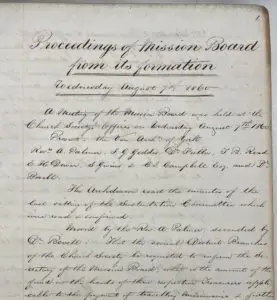 Proceedings of Mission Board
from its formation
Wednesday August 7th 1860
A Meeting of the Mission Board was held at the
Church Society Offices on Wednesday August 7th 1860
Present the Ven. Arch. of York
Revds A. Palmer, S. G. Geddes, Dr. T. B. Read
S. Givins & Campbell Esq and Dr
Bovell.
The Archdeacon read the minutes of the
last meeting of the Committee which
were read & confirmed
Moved by the Rev A Palmer, seconded by
Dr. Bovell. That the several District Branches
of the Church Society be requested to report the
of the Mission Board, what is the amount of the
fund at the hands of their respective Treasurers
to the payment of travelling Missionaries &